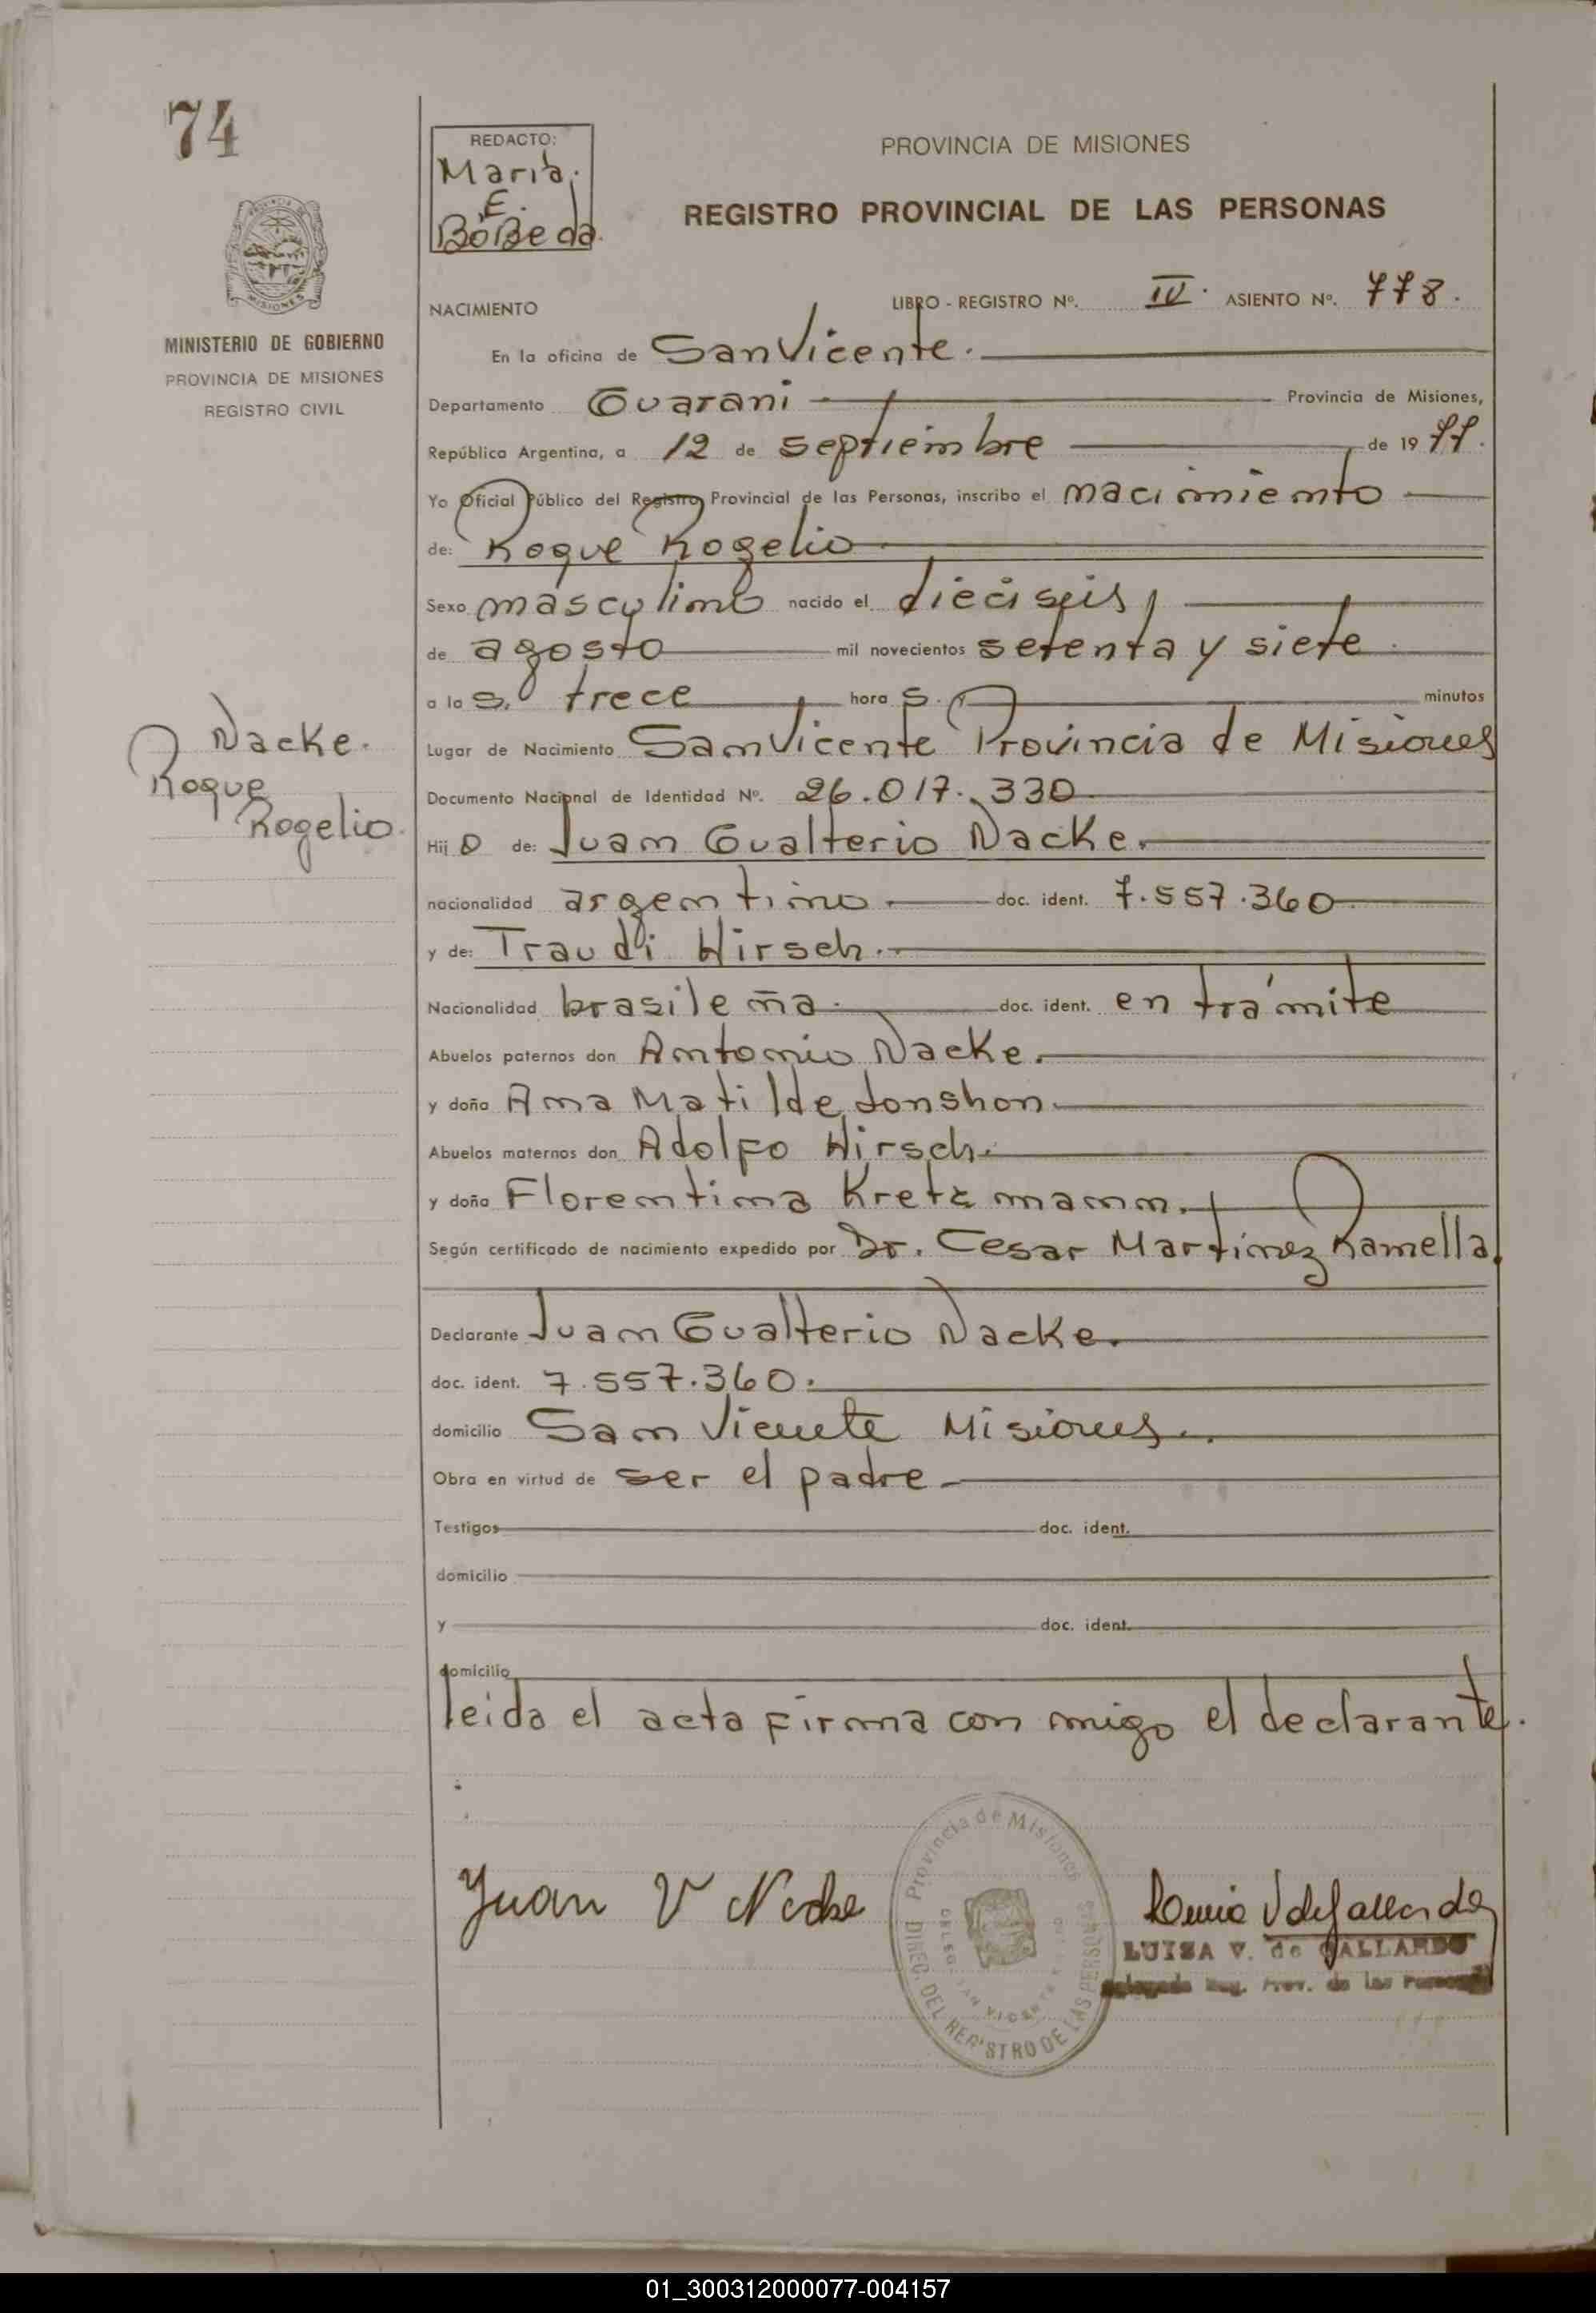 74
REDACTO:
Maria.
E.
BóBeda.
PROVINCIA DE MISIONES
REGISTRO PROVINCIAL DE LAS PERSONAS
MINISTERIO DE GOBIERNO
PROVINCIA DE MISIONES
REGISTRO CIVIL
NACIMIENTO LIBRO - REGISTRO Nº. IV. ASIENTO Nº. 778.
En la oficina de San Vicente.
Departamento Guarani Provincia de Misiones,
República Argentina, a 12 de septiembre de 1977.
Yo Oficial Público del Registro Provincial de las Personas, inscribo el nacimiento
de: Roque Rogelio
Sexo masculino nacido el dieciseis
de agosto mil novecientos setenta y siete
a las. trece horas. minutos
Nacke.
Roque
Rogelio.
Lugar de Nacimiento San Vicente Provincia de Misiones
Documento Nacional de Identidad Nº. 26.017.330
Hijo de: Juan Gualterio Nacke.
nacionalidad argentino doc. ident. 7.557.360
y de: Traudi Hirsch.
Nacionalidad brasileña. doc. ident. en trámite
Abuelos paternos don Antonio Nacke.
y doña Ana Matilde Jonshon.
Abuelos maternos don Adolfo Hirsch.
y doña Florentina Kretzmann.
Según certificado de nacimiento expedido por Dr. Cesar Martinez Ramella.
Declarante Juan Gualterio Nacke.
doc. ident. 7.557.360.
domicilio San Vicente Misiones.
Obra en virtud de ser el padre
Testigos doc. ident.
domicilio
y doc. ident.
domicilio
leida el acta firma con migo el declarante.
Provincia de Misiones
DIREC. DEL REGISTRO DE LAS PERSONAS
Juan V Nacke
LUISA V. de GALLARDO
Delegada Reg. Prov. de las Personas
01_300312000077-004157